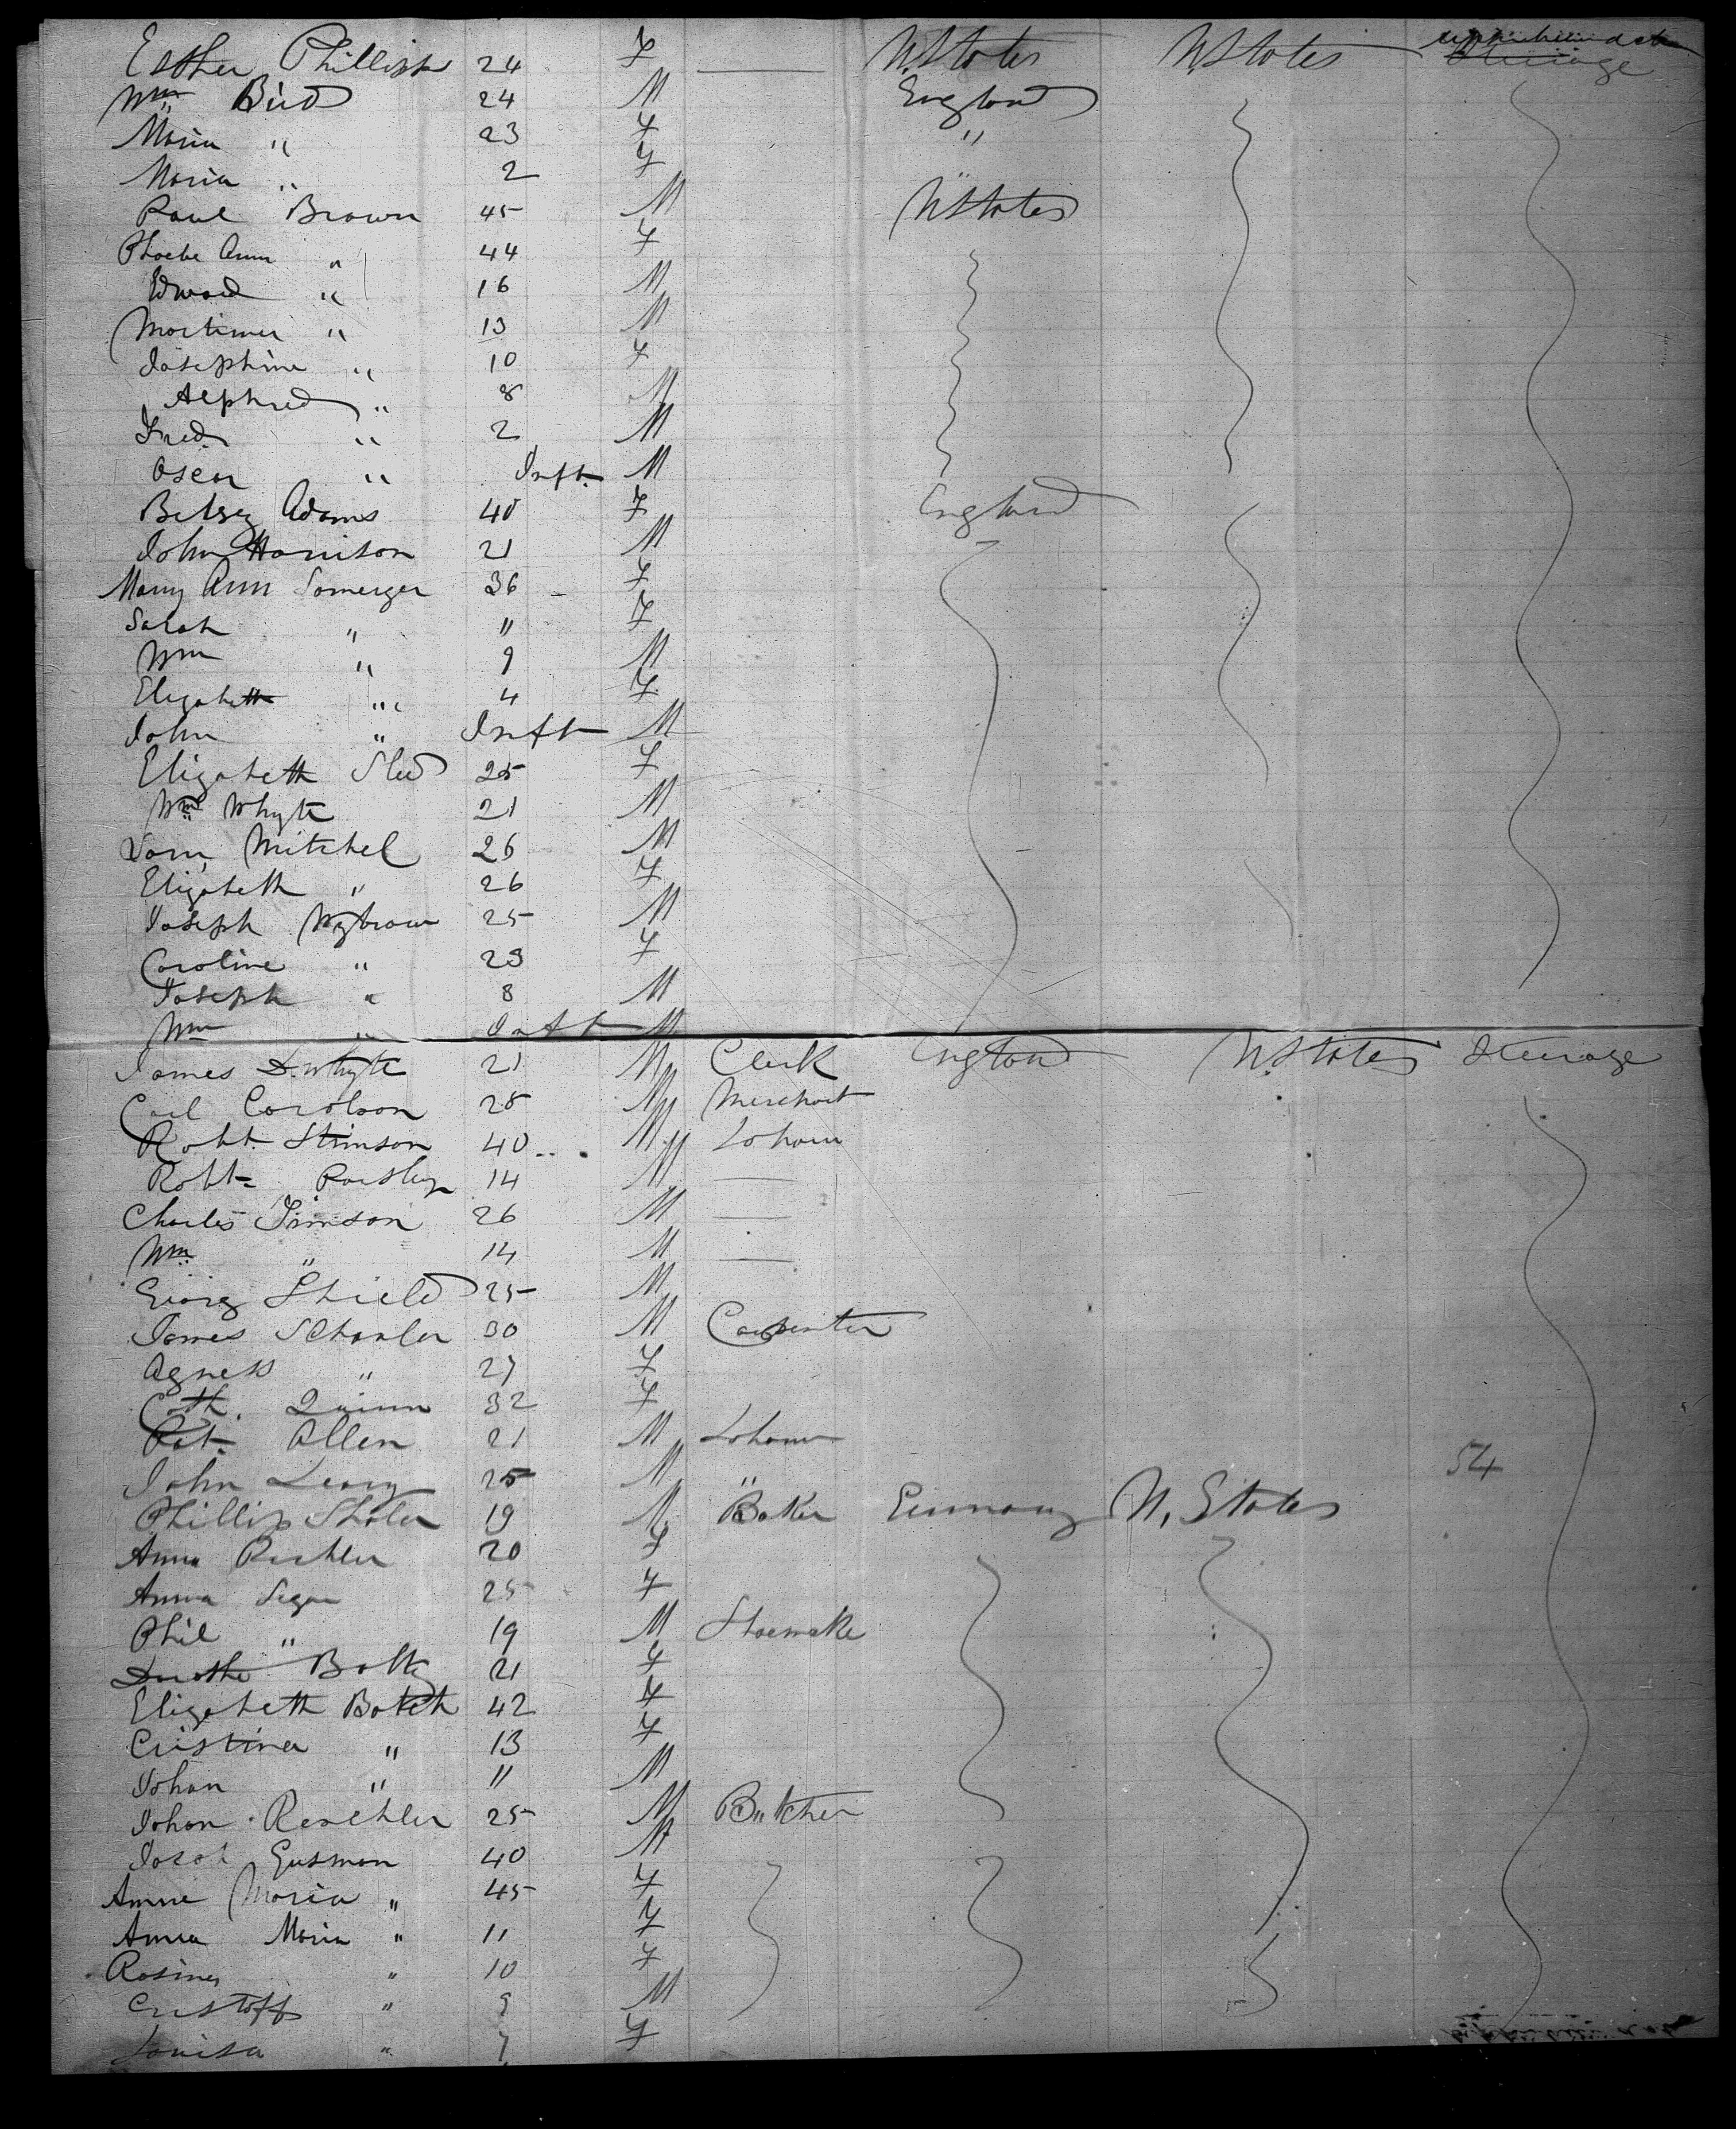 Esther Phillips 24 F — U. States U States Steerage
Wm Bird 24 M England
Maria " 23 F "
Maria " 2 F "
Paul Brown 45 M U States
Phoebe Ann " 44 F
Edward " 16 M
Mortimer " 13 M
Josephine " 10 F
Alphred " 8 M
Fred " 2 M
Oscar " Inft. M
Betsey Adams 40 F England
John Harrison 21 M
Mary Ann Somerger 36 F
Sarah " 11 F
Wm " 9 M
Elizabeth " 4 F
John " Inft M
Elizabeth Sled 25 F
Wm Whyte 21 M
Sam Mitchel 26 M
Elizabeth " 26 F
Joseph Wybrow 25 M
Caroline " 23 F
Joseph " 8 M
Wm " Inft M
James D. Whyte 21 M Clerk England U. States Steerage
Carl Carolson 28 M Merchant
Robt. Stimson 40 M Labour
Robt Parsley 14 M —
Charles Timson 26 M —
Wm " 14 M —
Georg Shield 25 M
James Schauler 30 M Carpenter
Agness " 27 F
Cath. Quinn 32 F
Pat. Allen 21 M Labour
John Leary 25 M " 54
Phillip Shaler 19 M Baker Germany U. States
Anna Rechler 20 F
Anna Segar 25 F
Phil " 19 M Shoemake
Dorothe Boltz 21 F
Elizabeth Botch 42 F
Cristina " 13 F
Johan " 11 M
Johan Reechler 25 M Butcher
Jacob Gusman 40 M
Anne Maria " 45 F
Anna Maria " 11 F
Rosina " 10 F
Cristoff " 9 M
Louisa " 7 F